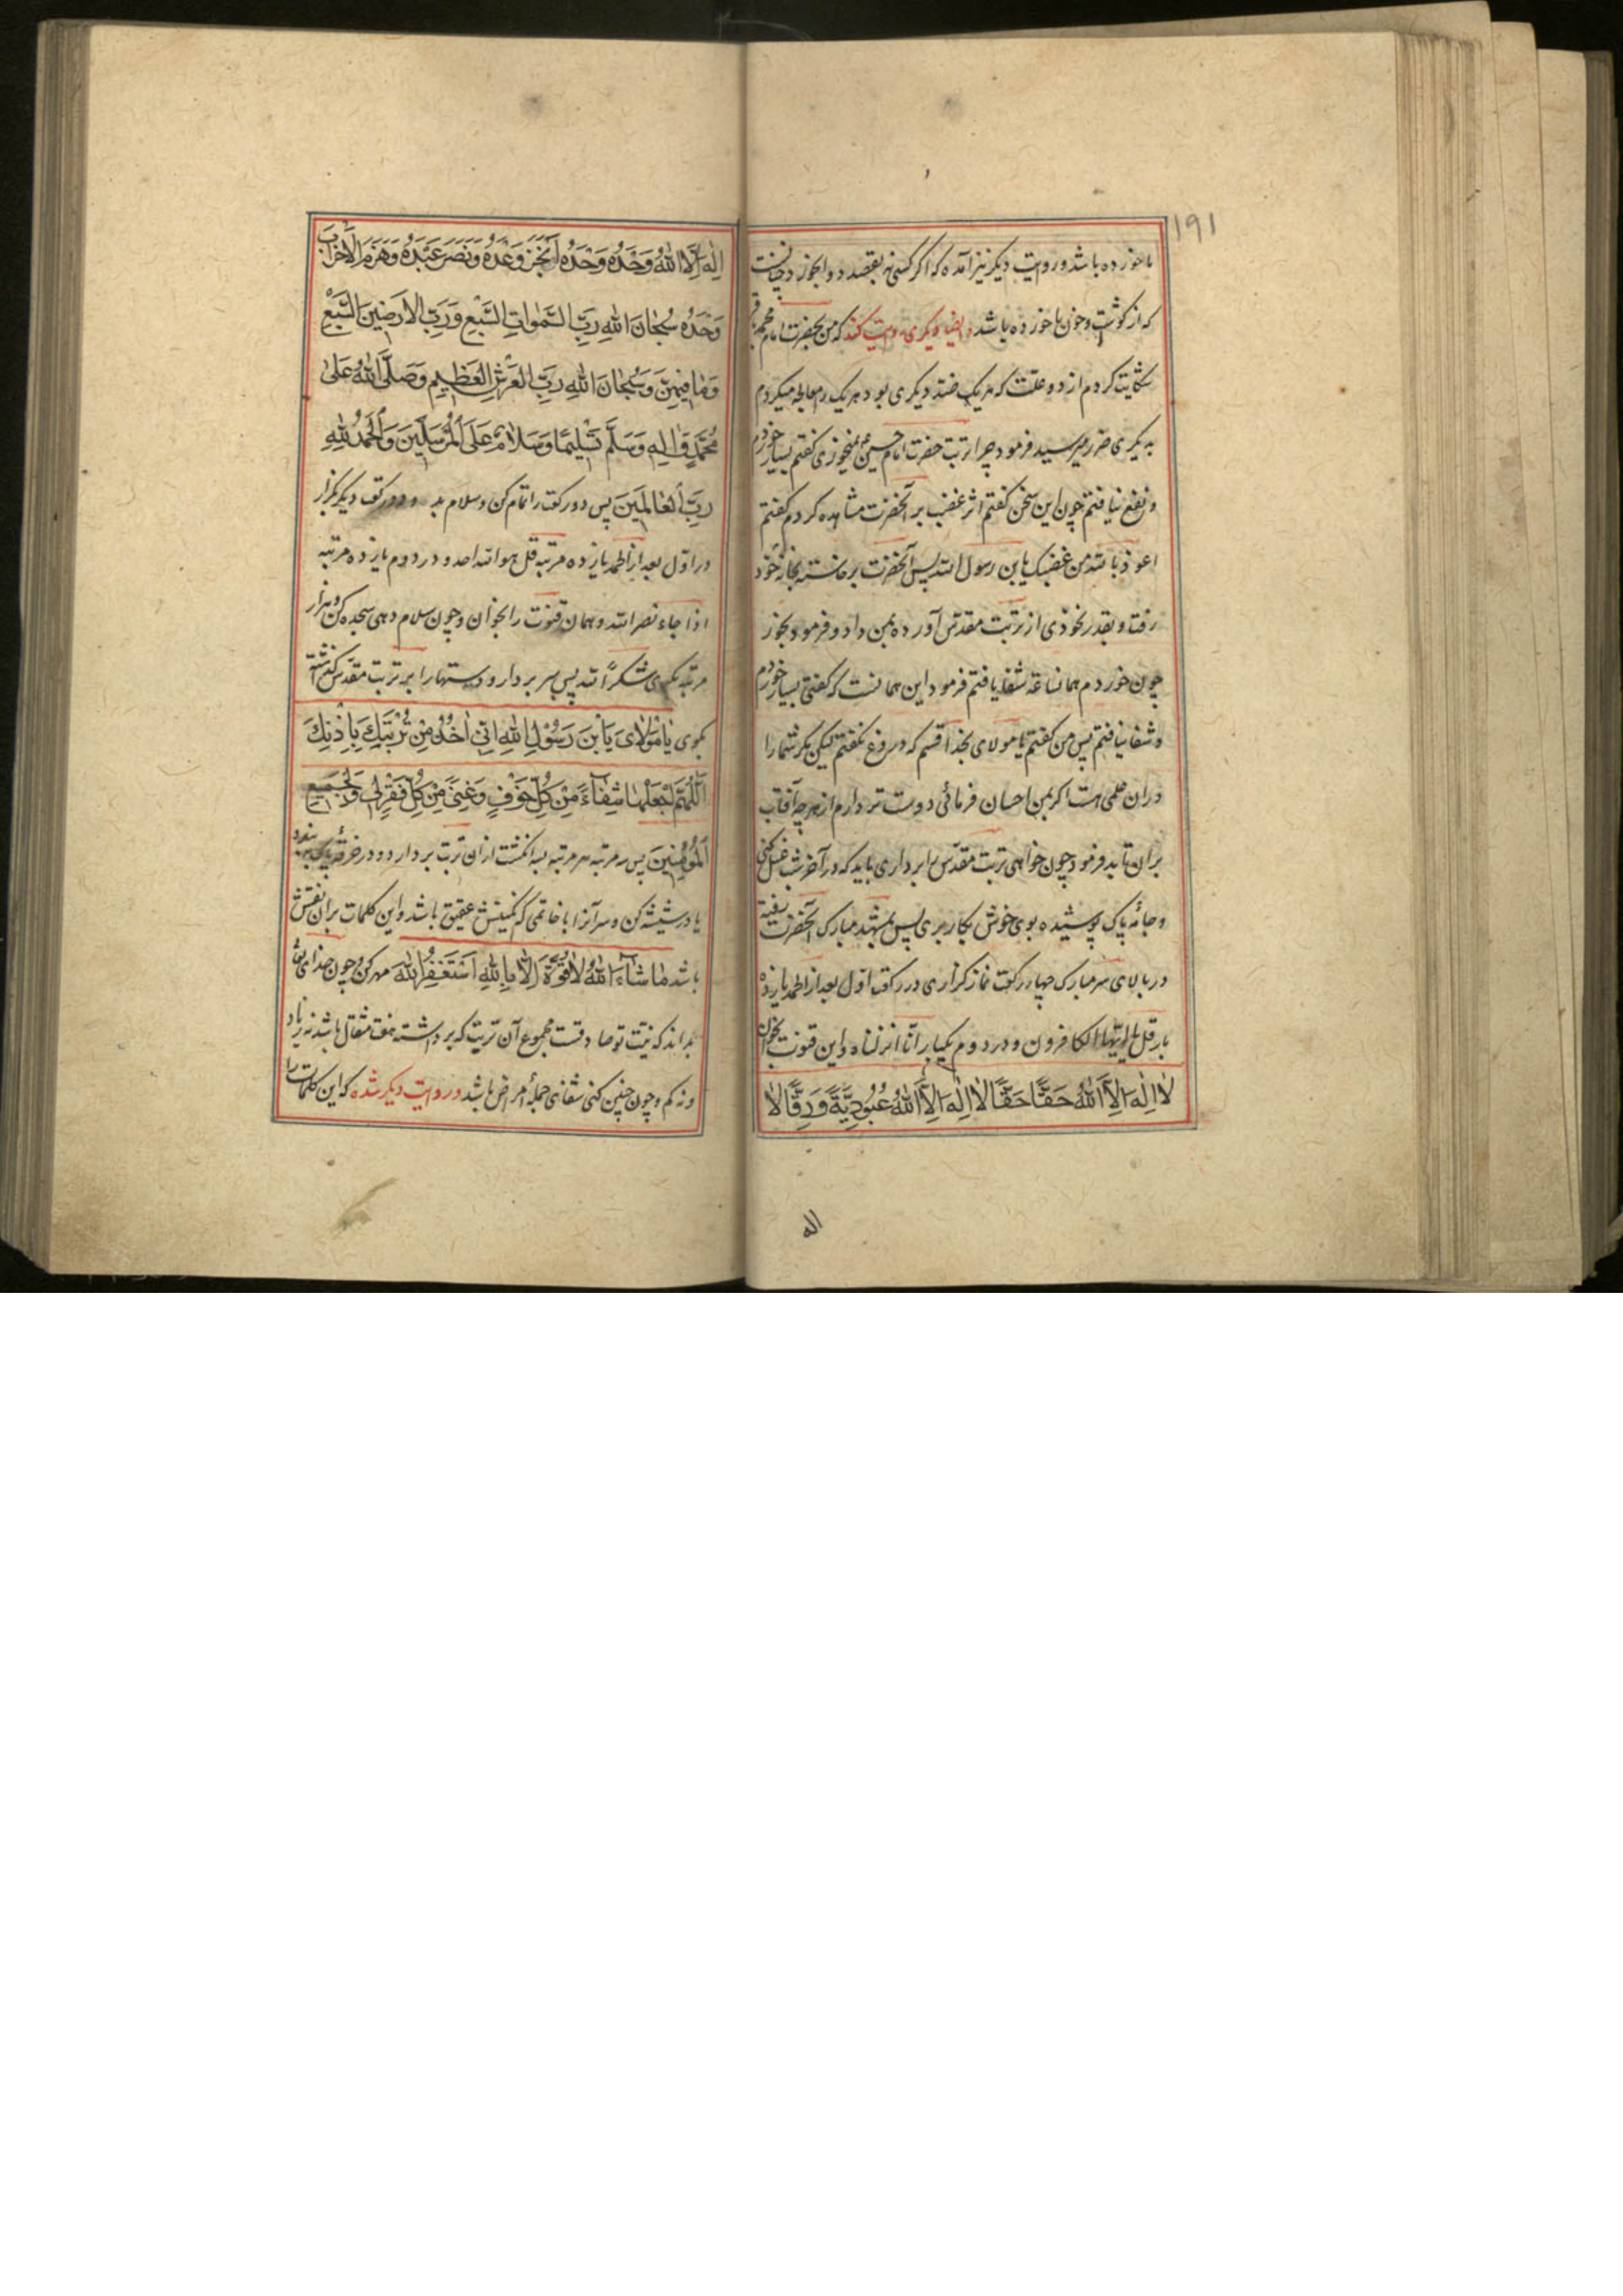 ۱۹۱
ما خورده باشد و روایت دیگر نیز آمده که اگر کسی نه بقصد دوا بخورد چنانست
که از گوشت و خون ما خورده باشد و ایضا دیگری روایت کند که من بحضرت امام محمد باقر
شکایت کردم از دو علت که هر یک ضد دیگری بود و هر یک را معالجه میکردم
به دیگری ضرر میرسید فرمود چرا از تربت حضرت امام حسین نمیخوری گفتم بسیار خوردم
و نفع نیافتم چون این سخن گفتم اثر غضب بر آنحضرت مشاهده کردم گفتم
اعوذ بالله من غضبک یا بن رسول الله پس آنحضرت برخاسته بخانه خود
رفت و بقدر نخودی از تربت مقدس آورده بمن داد و فرمود بخور
چون خوردم همان ساعة شفا یافتم فرمود این همانست که گفتی بسیار خوردم
و شفا نیافتم پس من گفتم یا مولای بخدا قسم که دروغ نگفتم لیکن مگر شما را
در آن علمی هست اگر بمن احسان فرمائی دوست تر دارم از هر چه آفتاب
بر آن تابد فرمود چون خواهی تربت مقدس را برداری باید که در آخر شب غسل کنی
و جامه پاک پوشیده بوی خوش بکار بری پس بمشهد مبارک آنحضرت
در بالای سر مبارک چهار رکعت نماز گزاری در رکعت اول بعد از الحمد یازده
بار قل یا ایها الکافرون و در دوم یکبار انا انزلناه و این قنوت بخوان
لا اِلٰهَ اِلاَّ اللهُ حَقًّا حَقًّا لا اِلٰهَ اِلاَّ اللهُ عُبُودِيَّةً وَرِقًّا لا
اله
اِلٰهَ اِلاَّ اللهُ وَحْدَهُ وَحْدَهُ اَنْجَزَ وَعْدَهُ وَنَصَرَ عَبْدَهُ وَهَزَمَ الْاَحْزابَ
وَحْدَهُ سُبْحانَ اللهِ رَبِّ السَّمٰواتِ السَّبْعِ وَرَبِّ الاَرَضينَ السَّبْعِ
وَما فيهِنَّ وَسُبْحانَ اللهِ رَبِّ الْعَرْشِ الْعَظيمِ وَصَلَّى اللهُ عَلى
مُحَمَّدٍ وَاٰلِهِ وَسَلَّمَ تَسْليمًا وَسَلامٌ عَلَى الْمُرْسَلينَ وَالْحَمْدُ للهِ
رَبِّ الْعالَمينَ پس دو رکعت را تمام کن و سلام بده و دو رکعت دیگر بگزار
در اول بعد از الحمد یازده مرتبه قل هو الله احد و در دوم یازده مرتبه
اذا جاء نصر الله و همان قنوت را بخوان و چون سلام دهی سجده کن و هزار
مرتبه بگوی شکرًا لله پس سر بردار و دستها را بر تربت مقدس گذاشته
بگوی يا مَوْلايَ يَا بْنَ رَسُوْلِ اللهِ اِنّي اٰخُذُ مِنْ تُرْبَتِكَ بِاِذْنِكَ
اَللّٰهُمَّ اجْعَلْها شِفاءً مِنْ كُلِّ خَوْفٍ وَغِنًى مِنْ كُلِّ فَقْرٍ لِي وَلِجَميعِ
الْمُؤْمِنينَ پس سه مرتبه هر مرتبه بسه انگشت از آن تربت بردار و در خرقه پاک ببند
یا در شیشه کن و سر آنرا با خاتمی که نگینش عقیق باشد و این کلمات بر آن نقش
باشد ما شاءَ اللهُ لا قُوَّةَ اِلاّ بِاللهِ اَسْتَغْفِرُ اللهَ مهر کن و چون خدای تعالی
بداند که نیت تو صادقست مجموع آن تربت که برداشته هفت مثقال باشد نه زیاد
و نه کم و چون چنین کنی شفای جمله امراض باشد در روایت دیگر شده که این کلمات را